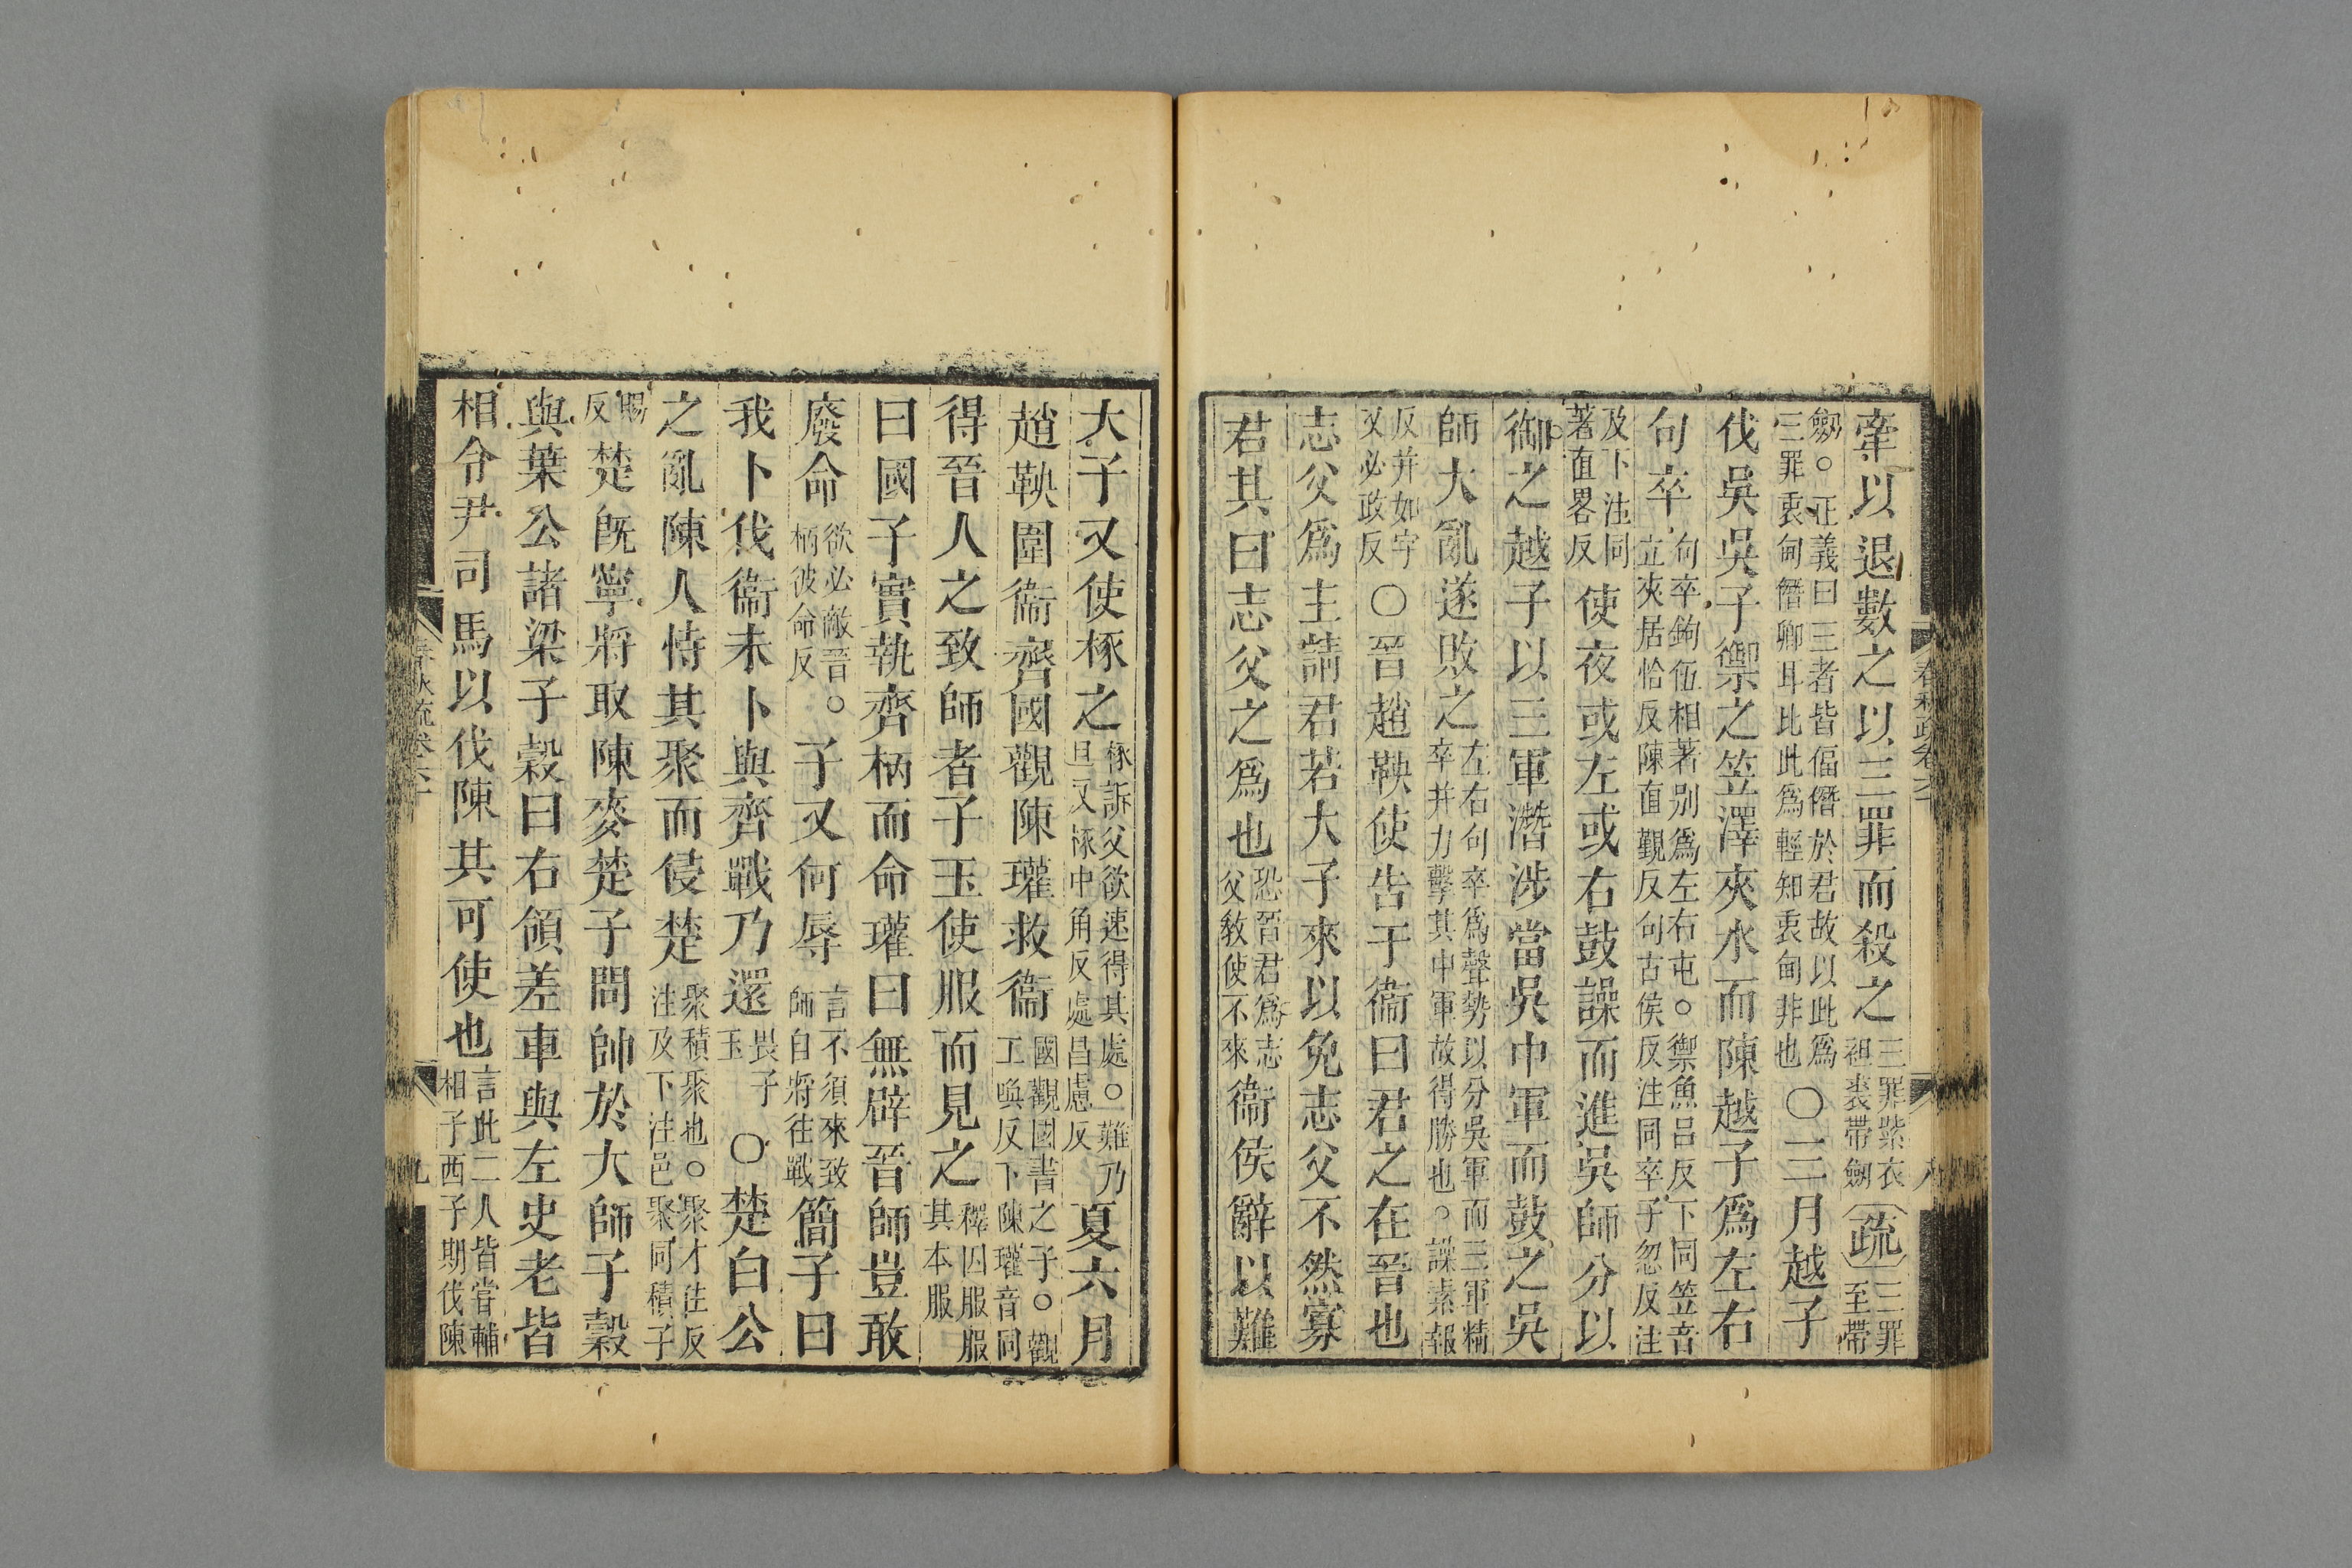 牽以退數之以三罪而殺之三罪紫衣袒裘帶劒疏三罪至帶
劒。正義曰三者皆偪僭於君故以此爲三罪衷甸僭卿耳比此爲輕知衷甸非也〇三月越子
伐吳吳子禦之笠澤夾水而陳越子爲左右
句卒句卒鉤伍相著別爲左右屯。禦魚呂反下同笠音立夾居恰反陳直覲反句古侯反注同卒子忽反注
及下注同著直畧反使夜或左或右鼓譟而進吳師分以
御之越子以三軍潛涉當吳中軍而鼓之吳
師大亂遂敗之左右句卒爲聲勢以分吳軍而三軍精卒并力擊其中軍故得勝也。譟素報
反并如字又必政反〇晉趙鞅使告于衞曰君之在晉也
志父爲主請君若大子來以免志父不然寡
君其曰志父之爲也恐晉君爲志父敎使不來衞侯辭以難
春秋疏卷六十
八
大子又使椓之椓訴父欲速得其處。難乃旦反椓中角反處昌慮反夏六月
趙鞅圍衞齊國觀陳瓘救衞國觀國書之子。觀工喚反下陳瓘音同
得晉人之致師者子玉使服而見之釋囚服服其本服
曰國子實執齊柄而命瓘曰無辟晉師豈敢
廢命欲必敵晉。柄彼命反子又何辱言不須來致師自將往戰簡子曰
我卜伐衞未卜與齊戰乃還畏子玉〇楚白公
之亂陳人恃其聚而侵楚聚積聚也。聚才住反注及下注邑聚同積子
賜反楚旣寧將取陳麥楚子問帥於大師子穀
與葉公諸梁子穀曰右領差車與左史老皆
相令尹司馬以伐陳其可使也言此二人皆嘗輔相子西子期伐陳
春秋疏卷六十
九